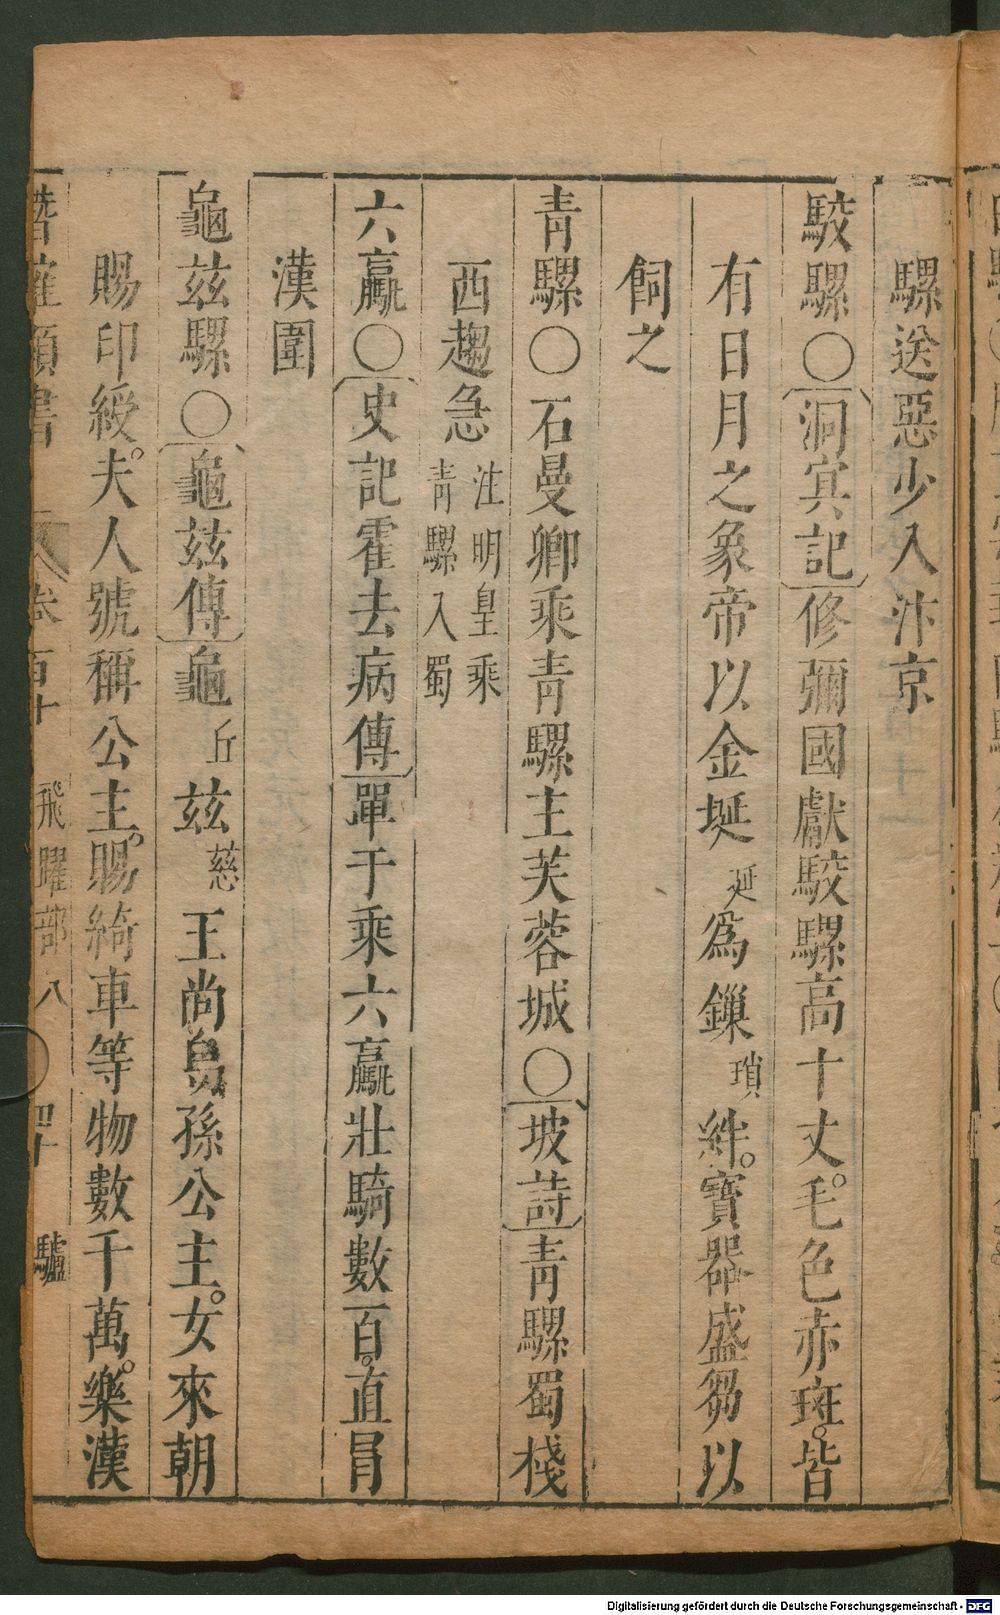 騾送惡少入汴京
駮騾○洞㝠記修彌國獻駮騾高十丈毛色赤斑皆
有日月之象帝以金埏延爲鏁瑣絆寶器盛芻以
飼之
青騾○石曼卿乘青騾主芙蓉城○坡詩青騾蜀棧
西趨急注明皇乘青騾入蜀
六驘○史記霍去病傳單于乘六驘壯騎數百直冒
漢圍
龜兹騾○龜兹傳龜丘兹慈王尚烏孫公主女來朝
賜印綬夫人號稱公主賜綺車等物數千萬樂漢
潛確類書 卷百十 飛躍部八 四十 驢
Digitalisierung gefördert durch die Deutsche Forschungsgemeinschaft - DFG